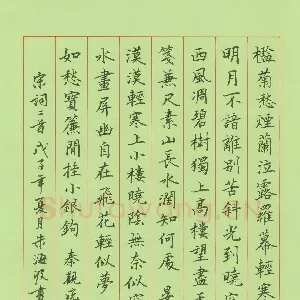 檻菊愁煙蘭泣露羅幕輕寒
明月不諳離別苦斜光到曉
西風凋碧樹獨上高樓望盡
箋兼尺素山長水闊知何處 晏
漠漠輕寒上小樓曉陰無奈似
水畫屏幽自在飛花輕似夢
如愁寶簾閒挂小銀鉤 秦觀
宋詞二首戊子年夏月朱海書